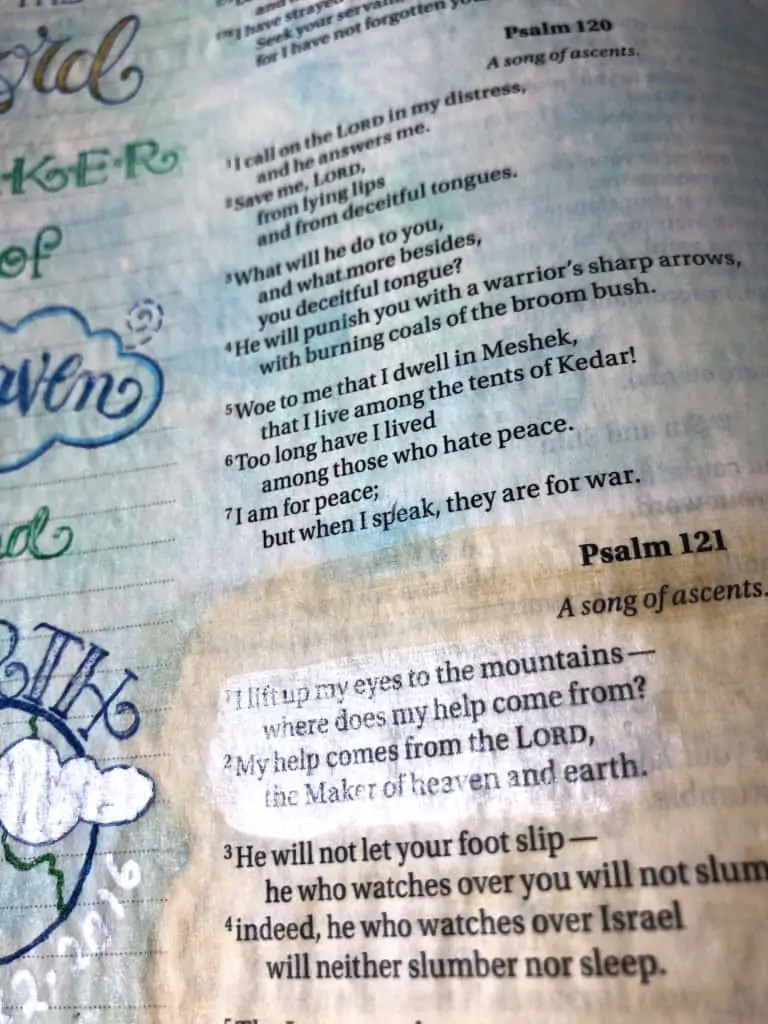 ord
KER
of
aven
RTH
2.2016
I have straye
Seek your servan
for I have not forgotten yo
Psalm 120
A song of ascents.
¹I call on the LORD in my distress,
and he answers me.
²Save me, LORD,
from lying lips
and from deceitful tongues.
³What will he do to you,
and what more besides,
you deceitful tongue?
⁴He will punish you with a warrior’s sharp arrows,
with burning coals of the broom bush.
⁵Woe to me that I dwell in Meshek,
that I live among the tents of Kedar!
⁶Too long have I lived
among those who hate peace.
⁷I am for peace;
but when I speak, they are for war.
Psalm 121
A song of ascents.
¹I lift up my eyes to the mountains—
where does my help come from?
²My help comes from the LORD,
the Maker of heaven and earth.
³He will not let your foot slip—
he who watches over you will not slum
⁴indeed, he who watches over Israel
will neither slumber nor sleep.